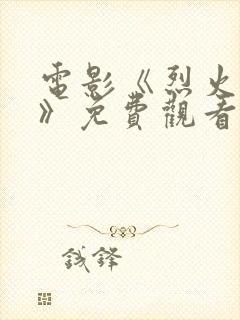 電影《烈火
》免費觀看
錢鋒